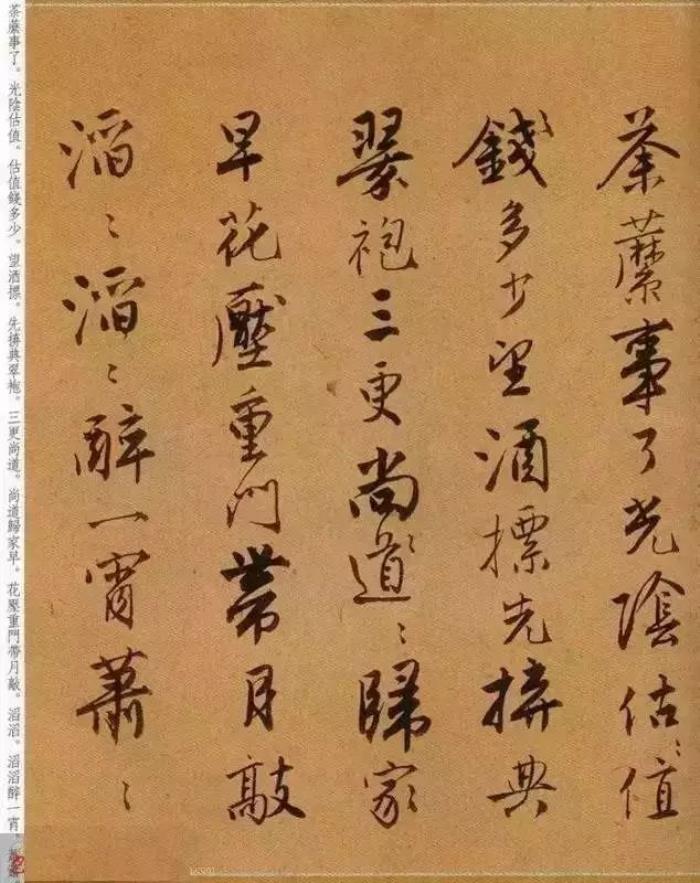 荼蘼事了光陰估〻值
錢多少望酒摽先拚典
翠袍三更尚道〻歸家
早花壓重門帶月敲
滔〻滔〻醉一宵蕭〻
荼蘼事了。光陰估值。估值錢多少。望酒摽。先拚典翠袍。三更尚道。尚道歸家早。花壓重門帶月敲。滔滔。滔滔醉一宵。